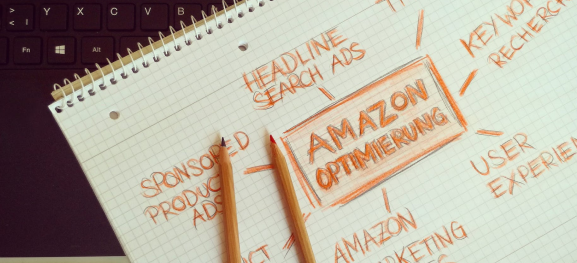 > Y X C V B N
< |
Fn Alt
HEADLINE
SEARCH ADS
KEYWOR
RECHERCH
AMAZON
OPTIMIERUNG
SPONSORED
PRODUCT
ADS
USER
EXPERIEN
AMAZON
RKETING